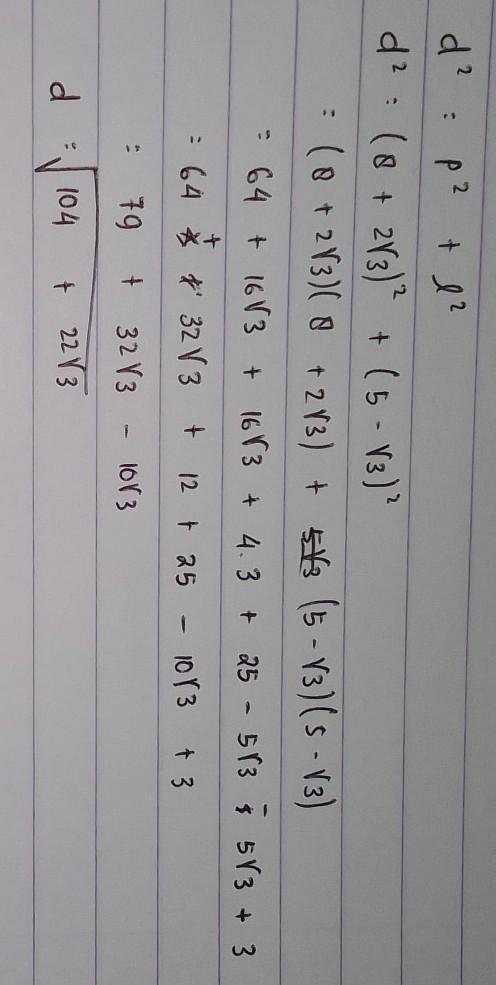 d² : p² + l²
d² : (8 + 2√3)² + (5 - √3)²
: (8 + 2√3)(8 + 2√3) + (5 - √3)(5 - √3)
= 64 + 16√3 + 16√3 + 4.3 + 25 - 5√3 - 5√3 + 3
= 64 + 32√3 + 12 + 25 - 10√3 + 3
= 79 + 32√3 - 10√3
d = √104 + 22√3